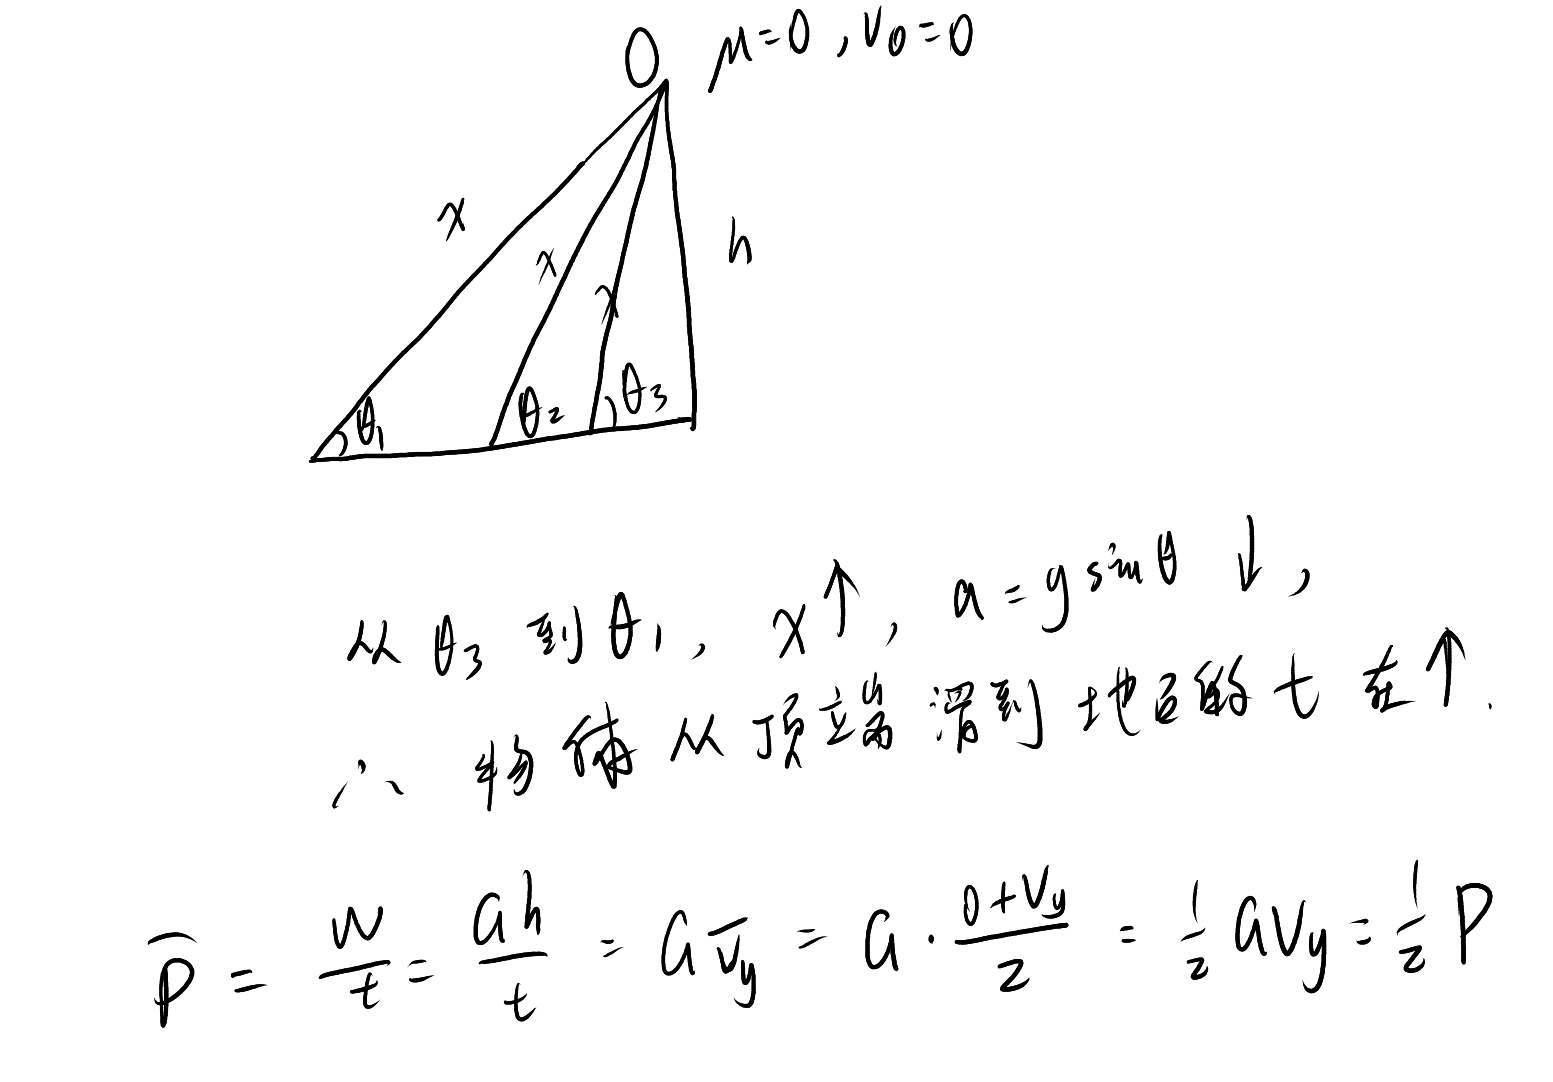 O μ=0 , v₀=0
x
h
x
x
θ₁
θ₂
θ₃
从 θ₃ 到 θ₁ , x↑ , a=gsinθ ↓ ,
∴ 物体从顶端滑到地面的 t 在↑ .
P̄ = W/t = Gh/t = G v̄y = G · (0+Vy)/2 = 1/2 GVy = 1/2 P